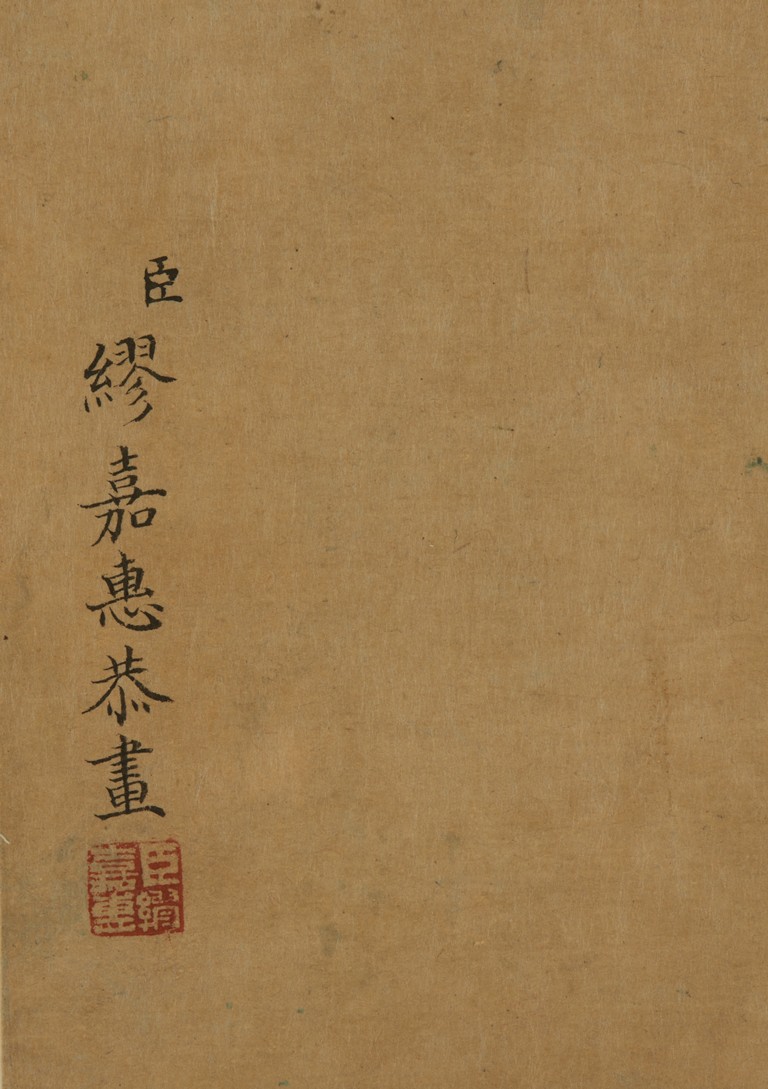 臣繆嘉惠恭畫
臣繆
嘉惠